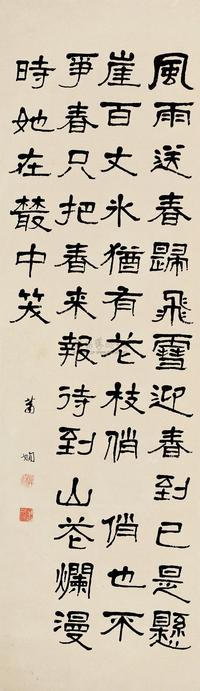 風雨送春歸飛雪迎春到已是懸
崖百丈氷猶有花枝俏俏也不
爭春只把春來報待到山花爛漫
時她在叢中笑
蕭嫻